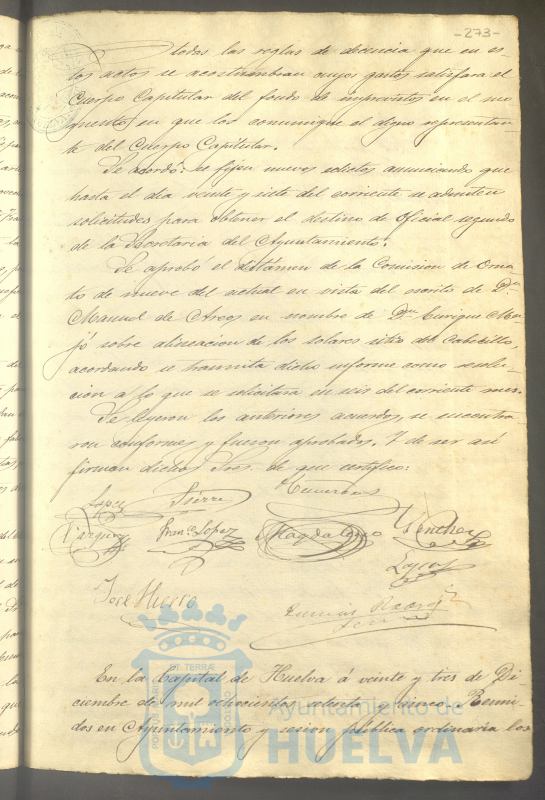 -273-
todas las reglas de decencia que en es-
tos actos se acostumbran cuyos gastos satisfara el
Cuerpo Capitular del fondo de imprevistos en el mo-
mento en que los comunique el digno representan-
te del Cuerpo Capitular.
Se acordó: se fijen nuevos edictos anunciando que
hasta el dia veinte y siete del corriente se admiten
solicitudes para obtener el destino de Oficial segundo
de la Secretaria del Ayuntamiento.
Se aprobó el dictámen de la Comision de Orna-
to de nueve del actual en vista del escrito de Dn
Manuel de Arcos en nombre de Dn Enrique
sobre alineacion de los solares sitio del Cabezillo,
acordando se trasmita dicho informe como resolu-
cion a lo que se solicitara en seis del corriente mes.
Se leyeron los anteriores acuerdos, se encontra-
ron conformes y fueron aprobados. Y de ser asi
firman dichos Sres. de que certifico:
Lopez Sierra
Franco Lopez Magdaleno Sanchez
José Hierro
En la Capital de Huelva á veinte y tres de Di-
ciembre de mil ochocientos ochenta y cinco. Reuni-
dos en Ayuntamiento y sesion pública ordinaria los
Ayuntamiento de
HUELVA